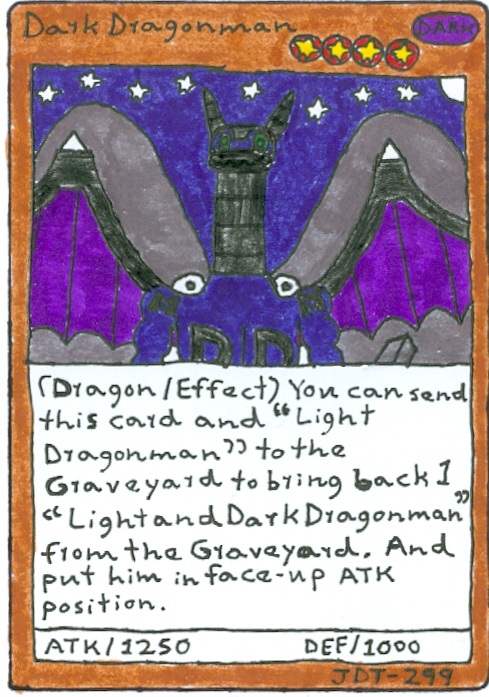 Dark Dragonman
DARK
DD
(Dragon/Effect) You can send
this card and “Light
Dragonman” to the
Graveyard to bring back 1
“LightandDarkDragonman”
from the Graveyard. And
put him in face-up ATK
position.
ATK/1250 DEF/1000
JDT-299